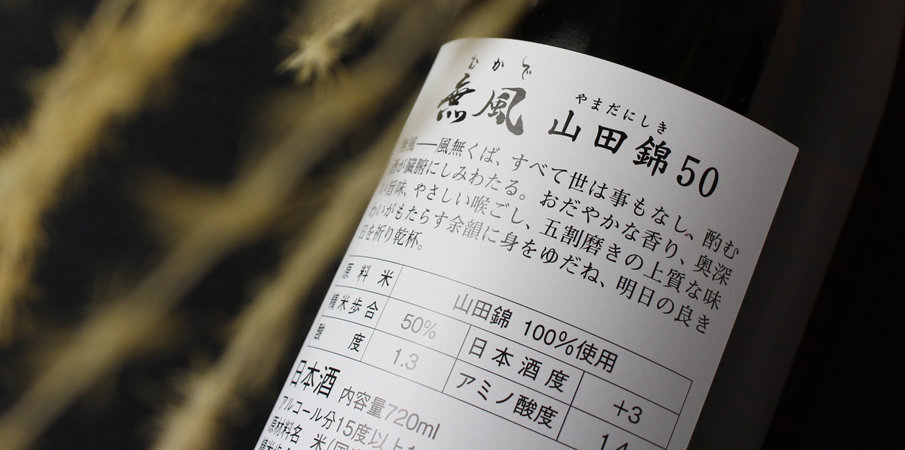 むかで やまだにしき
無風 山田錦50
無風――風無くば、すべて世は事もなし、酌む
酒が臓腑にしみわたる。おだやかな香り、奥深
い旨味、やさしい喉ごし、五割磨きの上質な味
わいがもたらす余韻に身をゆだね、明日の良き
日を祈り乾杯。
原料米 山田錦 100%使用
精米歩合 50% 日本酒度 +3
酸度 1.3 アミノ酸度 1.4
日本酒 内容量720ml
アルコール分15度以上1
原材料名 米(国
精米歩合